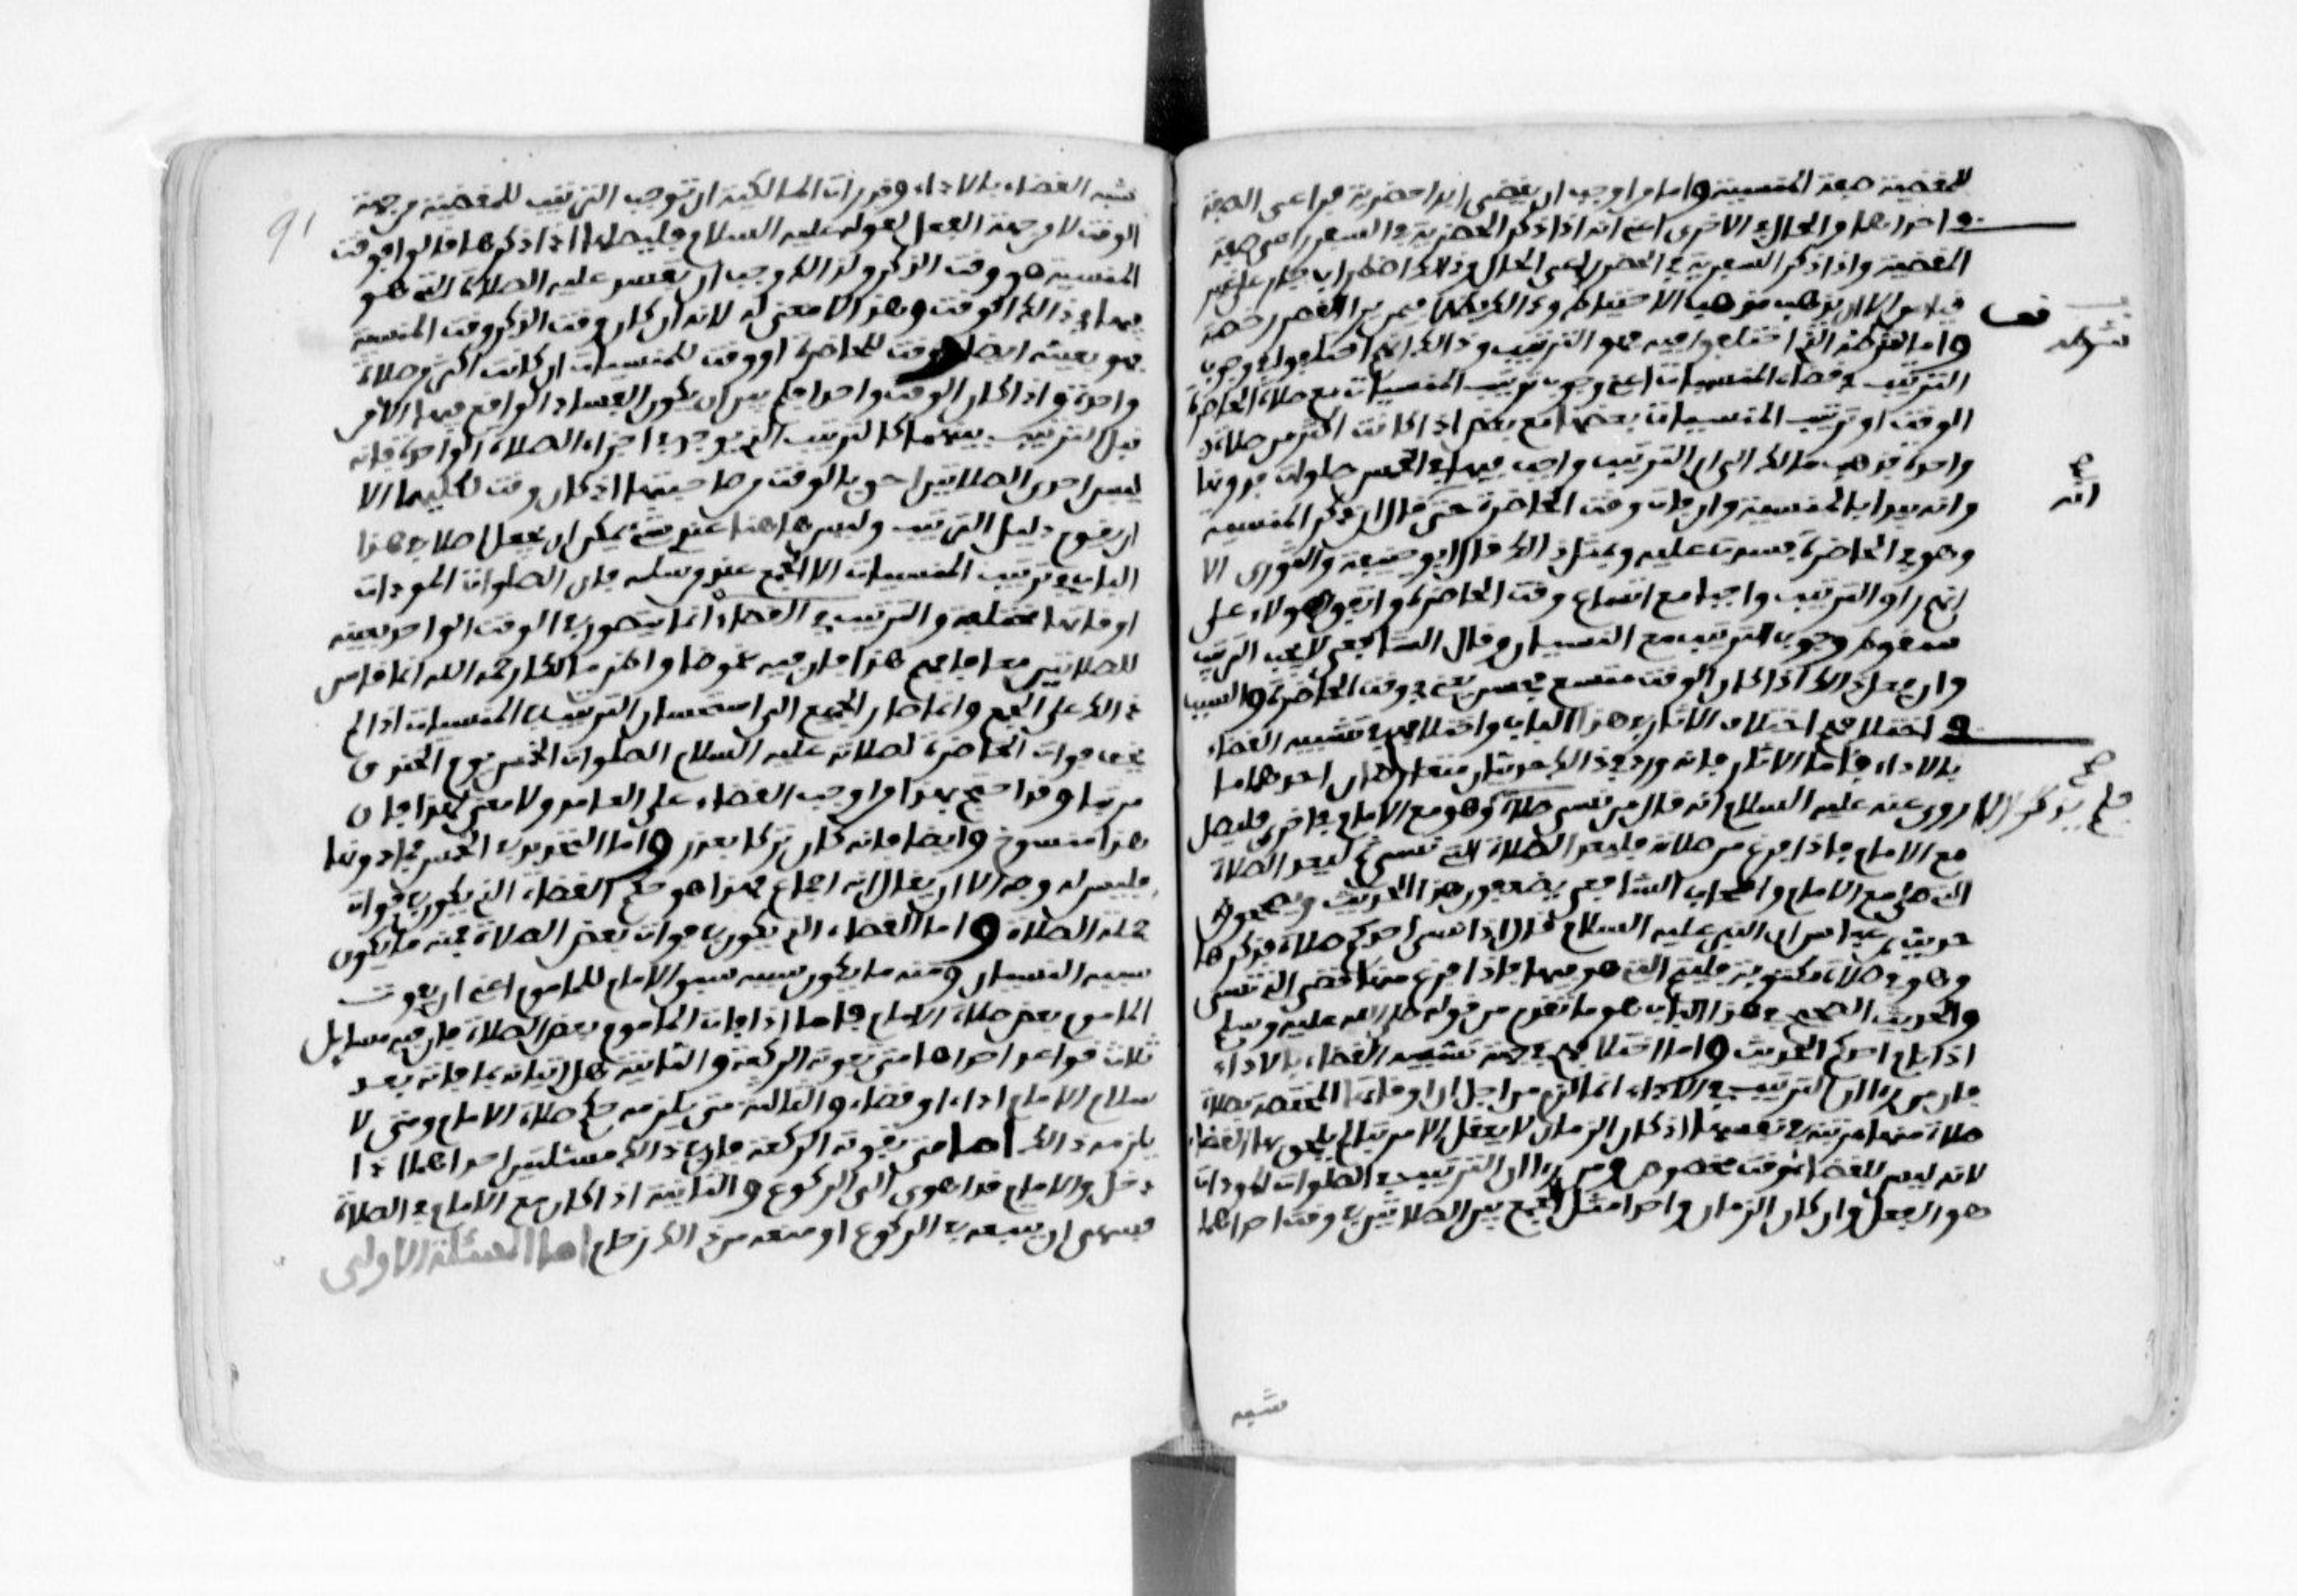 للمقضية صفة المنسية واما من اوجب ان يقضي ابدا حضرية فراعى الصفة
في احداهما والحال في الاخرى اعني انه اذا ذكر الحضرية في السفر راعى صفة
المقضية واذا ذكر السفرية في الحضر راعى الحال وذلك اضطراب جار على غير
قياس الا ان يذهب مذهب الاحتياط وذلك يتصور فيمن يرا القصر رخصة
واما شرطه الذي اختلفوا فيه فهو الترتيب وذلك انهم اختلفوا في وجوب
الترتيب في قضاء المنسيات اعني وجوب ترتيب المنسيات مع صلاة الحاضرة
الوقت او ترتيب المنسيات بعضها مع بعض اذا كانت اكثر من صلاة
واحدة فذهب مالك الى ان الترتيب واجب فيها في الخمس صلوات فدونها
وانه يبدا بالمنسية وان فات وقت الحاضرة حتى قال ان ذكر المنسية
وهو في الحاضرة فسدت عليه وبمثل ذلك قال ابو حنيفة والثوري الا
انهم راوا الترتيب واجبا مع اتساع وقت الحاضرة واتفق هولاء على
سقوط وجوب الترتيب مع النسيان وقال الشافعي لا يجب الترتيب
وان فعل ذلك اذا كان الوقت متسع فحسن يعني في وقت الحاضرة والسبب
في اختلافهم اختلاف الاثار في هذا الباب واختلافهم في تشبيه القضاء
بالاداء فاما الاثار فانه ورد في ذلك حديثان متعارضان احدهما ما
روي عنه عليه السلام انه قال من نسي صلاة وهو مع الامام في اخرى فليصل
مع الامام فاذا فرغ من صلاته فليعد الصلاة التي نسي ثم ليعد الصلاة
التي صلى مع الامام واصحاب الشافعي يضعفون هذا الحديث ويصححون
حديث ابن عباس ان النبي عليه السلام قال اذا نسي احدكم صلاة فذكرها
وهو في صلاة مكتوبة فليتم التي هو فيها فاذا فرغ منها قضى التي نسي
والحديث الصحيح في هذا الباب هو ما تقدم من قوله صلى الله عليه وسلم
اذا نام احدكم الحديث واما اختلافهم في جهة تشبيه القضاء بالاداء
فان من راا ان الترتيب في الاداء انما لزم من اجل ان اوقاتها المختصة بصلاة
صلاة منها مرتبة في نفسها اذ كان الزمان لا يعقل الا مرتبا لم يلحق بها القضاء
لانه ليس للقضاء وقت مخصوص ومن راا ان الترتيب في الصلوات المودات
هو الفعل وان كان الزمان واحدا مثل الجمع بين الصلاتين في وقت احداهما
شبه
قف
شرطه
صح
انه
صح
فلم يذكر الا
91
شبه القضاء بالاداء وقد رات المالكية ان توجب الترتيب للمقضية من جهة
الوقت لا من جهة الفعل لقوله عليه السلام فليصلها اذا ذكرها قالوا فوقت
المنسية هو وقت الذكر ولذلك وجب ان تفسد عليه الصلاة التي هو
فيها في ذلك الوقت وهذا لا معنى له لانه ان كان وقت الذكر وقت المنسية
فهو بعينه ايضا وقت للحاضرة او وقت للمنسيات ان كانت اكثر من صلاة
واحدة واذا كان الوقت واحدا فلم يبق ان يكون الفساد الواقع فيها الا من
قبل الترتيب بينهما كالترتيب الذي يوجد في اجزاء الصلاة الواحدة فانه
ليس احدى الصلاتين احق بالوقت من صاحبتها اذ كان وقت لكليهما الا
ان يقوم دليل الترتيب وليس هاهنا عندي شيء يمكن ان يجعل اصلا في هذا
الباب في ترتيب المنسيات الا الجمع عند من سلمه فان الصلوات المودات
اوقاتها مختلفة والترتيب في القضاء انما يتصور في الوقت الواحد بعينه
للصلاتين معا فافهم هذا فان فيه غموضا واظن مالكا رحمه الله انما قاس
ذلك على الجمع وانما صار الجميع الى استحسان الترتيب في المنسيات اذا لم
يخف فوات الحاضرة لصلاته عليه السلام الصلوات الخمس يوم الخندق
مرتبا وقد احتج بهذا من اوجب القضاء على العامد ولا معنى لهذا فان
هذا منسوخ وايضا فانه كان تركا بعذر واما التحديد في الخمس فما دونها
فليس له وجه الا ان يقال انه اجماع فهذا هو حكم القضاء الذي يكون في فوات
جملة الصلاة واما القضاء الذي يكون في فوات بعض الصلاة فمنه ما يكون
سببه النسيان ومنه ما يكون سببه سبق الامام للماموم اعني ان يفوت
الماموم بعض صلاة الامام فاما اذا فات الماموم بعض الصلاة فان فيه مسايل
ثلاث قواعد احداها متى تفوته الركعة والثانية هل اتيانه بما فاته بعد
سلام الامام اداء او قضاء والثالثة متى يلزمه حكم صلاة الامام ومتى لا
يلزمه ذلك اما متى تفوته الركعة فان في ذلك مسئلتين احداهما اذا
دخل والامام قد اهوى الى الركوع والثانية اذا كان مع الامام في الصلاة
فسهى ان يتبعه في الركوع او منعه من ذلك زحام اما المسئلة الاولى